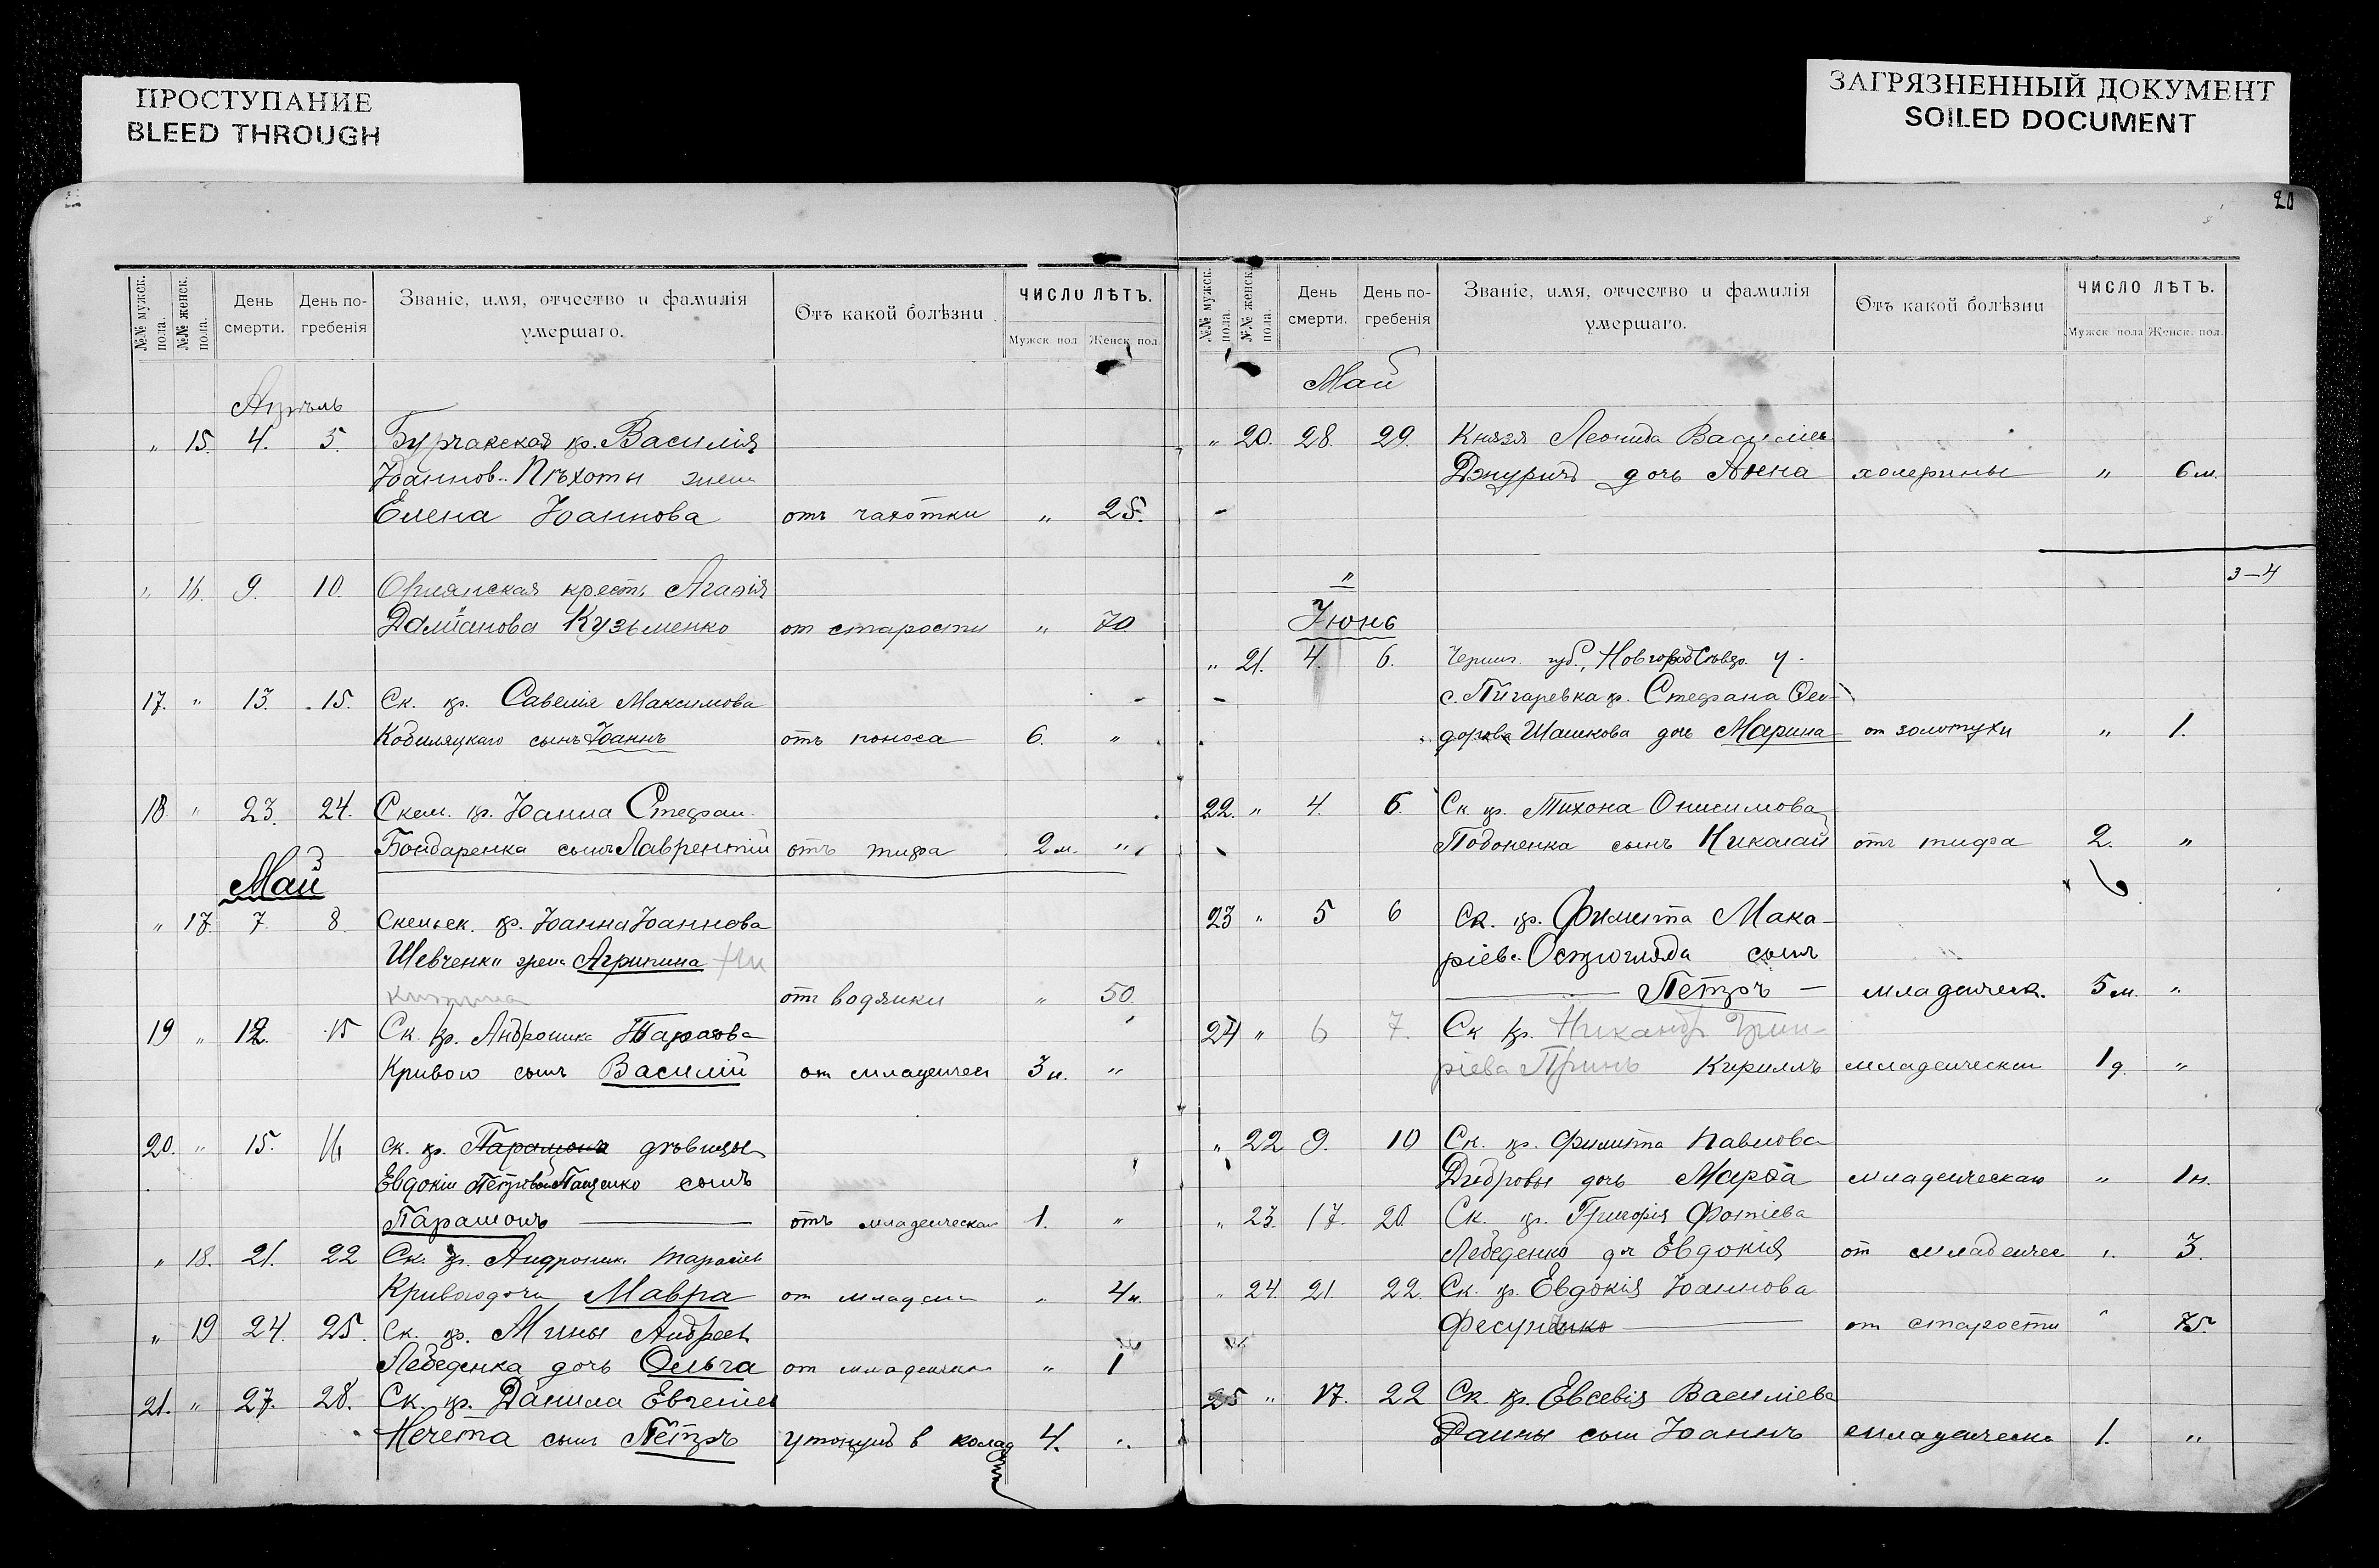 ПРОСТУПАНИЕ
BLEED THROUGH
ЗАГРЯЗНЕННЫЙ ДОКУМЕНТ
SOILED DOCUMENT
20
№№ мужск. пола. №№ женск. пола. День смерти. День погребенія Званіе, имя, отчество и фамилія умершаго. Отъ какой болѣзни ЧИСЛО ЛѢТЪ. Мужск пол Женск. пол
Апрѣль
" 15. 4. 5. Бурчакская кр. Василія
Іоаннов. Пѣхоты жена
Елена Іоаннова отъ чахотки " 25.
" 16. 9. 10. крест. Агафія
Даміанова Кузьменко от старости " 70.
17. " 13. 15. Ск. кр. Савелія Максимова
Кобиляцкаго сынъ Іоаннъ отъ поноса 6. "
18 " 23. 24. Скел. кр. Іоанна Стефан.
Бондаренка сынъ Лаврентій отъ тифа 2 м. "
Май
" 17. 7. 8. Скельск. кр. Іоанна Іоаннова
Шевченки жена Агрипина
от водянки " 50.
19 " 12. 15 Ск. кр. Андроника Тарасова
Кривого сынъ Василій от младенчес 3 н. "
20. " 15. 16 Ск. кр. Парамона дѣвицы
Евдокіи Петровой Пащенко сынъ
Парамонъ отъ младенческая 1. "
" 18. 21. 22 Ск. кр. Андроник. Тарасіев
Кривого дочь Мавра от младен " 4 н.
" 19 24. 25. Ск. кр. Мины Андреев
Лебеденка дочь Ольга от младенческ " 1
21. " 27. 28. Ск. кр. Данила Евгеніев
Нечета сынъ Петръ утонулъ в колод 4. "
№№ мужск. пола. №№ женск. пола. День смерти. День погребенія Званіе, имя, отчество и фамилія умершаго. Отъ какой болѣзни ЧИСЛО ЛѢТЪ. Мужск. пола Женск. пол.
Май
" 20. 28. 29. Князя Леонида Василіев
Джуричъ дочь Анна холерины " 6 м.
3–4
"
Іюнь
" 21. 4. 6. Черниг. губ., Новгород Сѣвер. у.
с. Пигаревка кр. Стефана Ѳео-
дорова Шашкова дочь Марина от золотухи " 1.
22. " 4. 6. Ск кр. Тихона Онисимова
сынъ Николай отъ тифа 2. "
23 " 5 6 Ск. кр. Филиппа Мака-
ріева Острогляда сынъ
Петръ младенческ. 5 м. "
24 " 6 7. Ск кр. Никандр Григо-
ріева Кириллъ младенческой 1 д. "
" 22 9. 10 Ск. кр. Филиппа Павлова
дочь Марѳа младенческой " 1 н.
" 23. 17. 20. Ск. кр. Григорія Фотіева
Лебеденко дч Евдокія от младенчес " 3.
" 24. 21. 22. Ск. кр. Евдокія Іоаннова
Фесуненко от старости " 75.
25 " 17. 22 Ск. кр. Евсевія Василіева
сын Іоаннъ младенческ 1. "